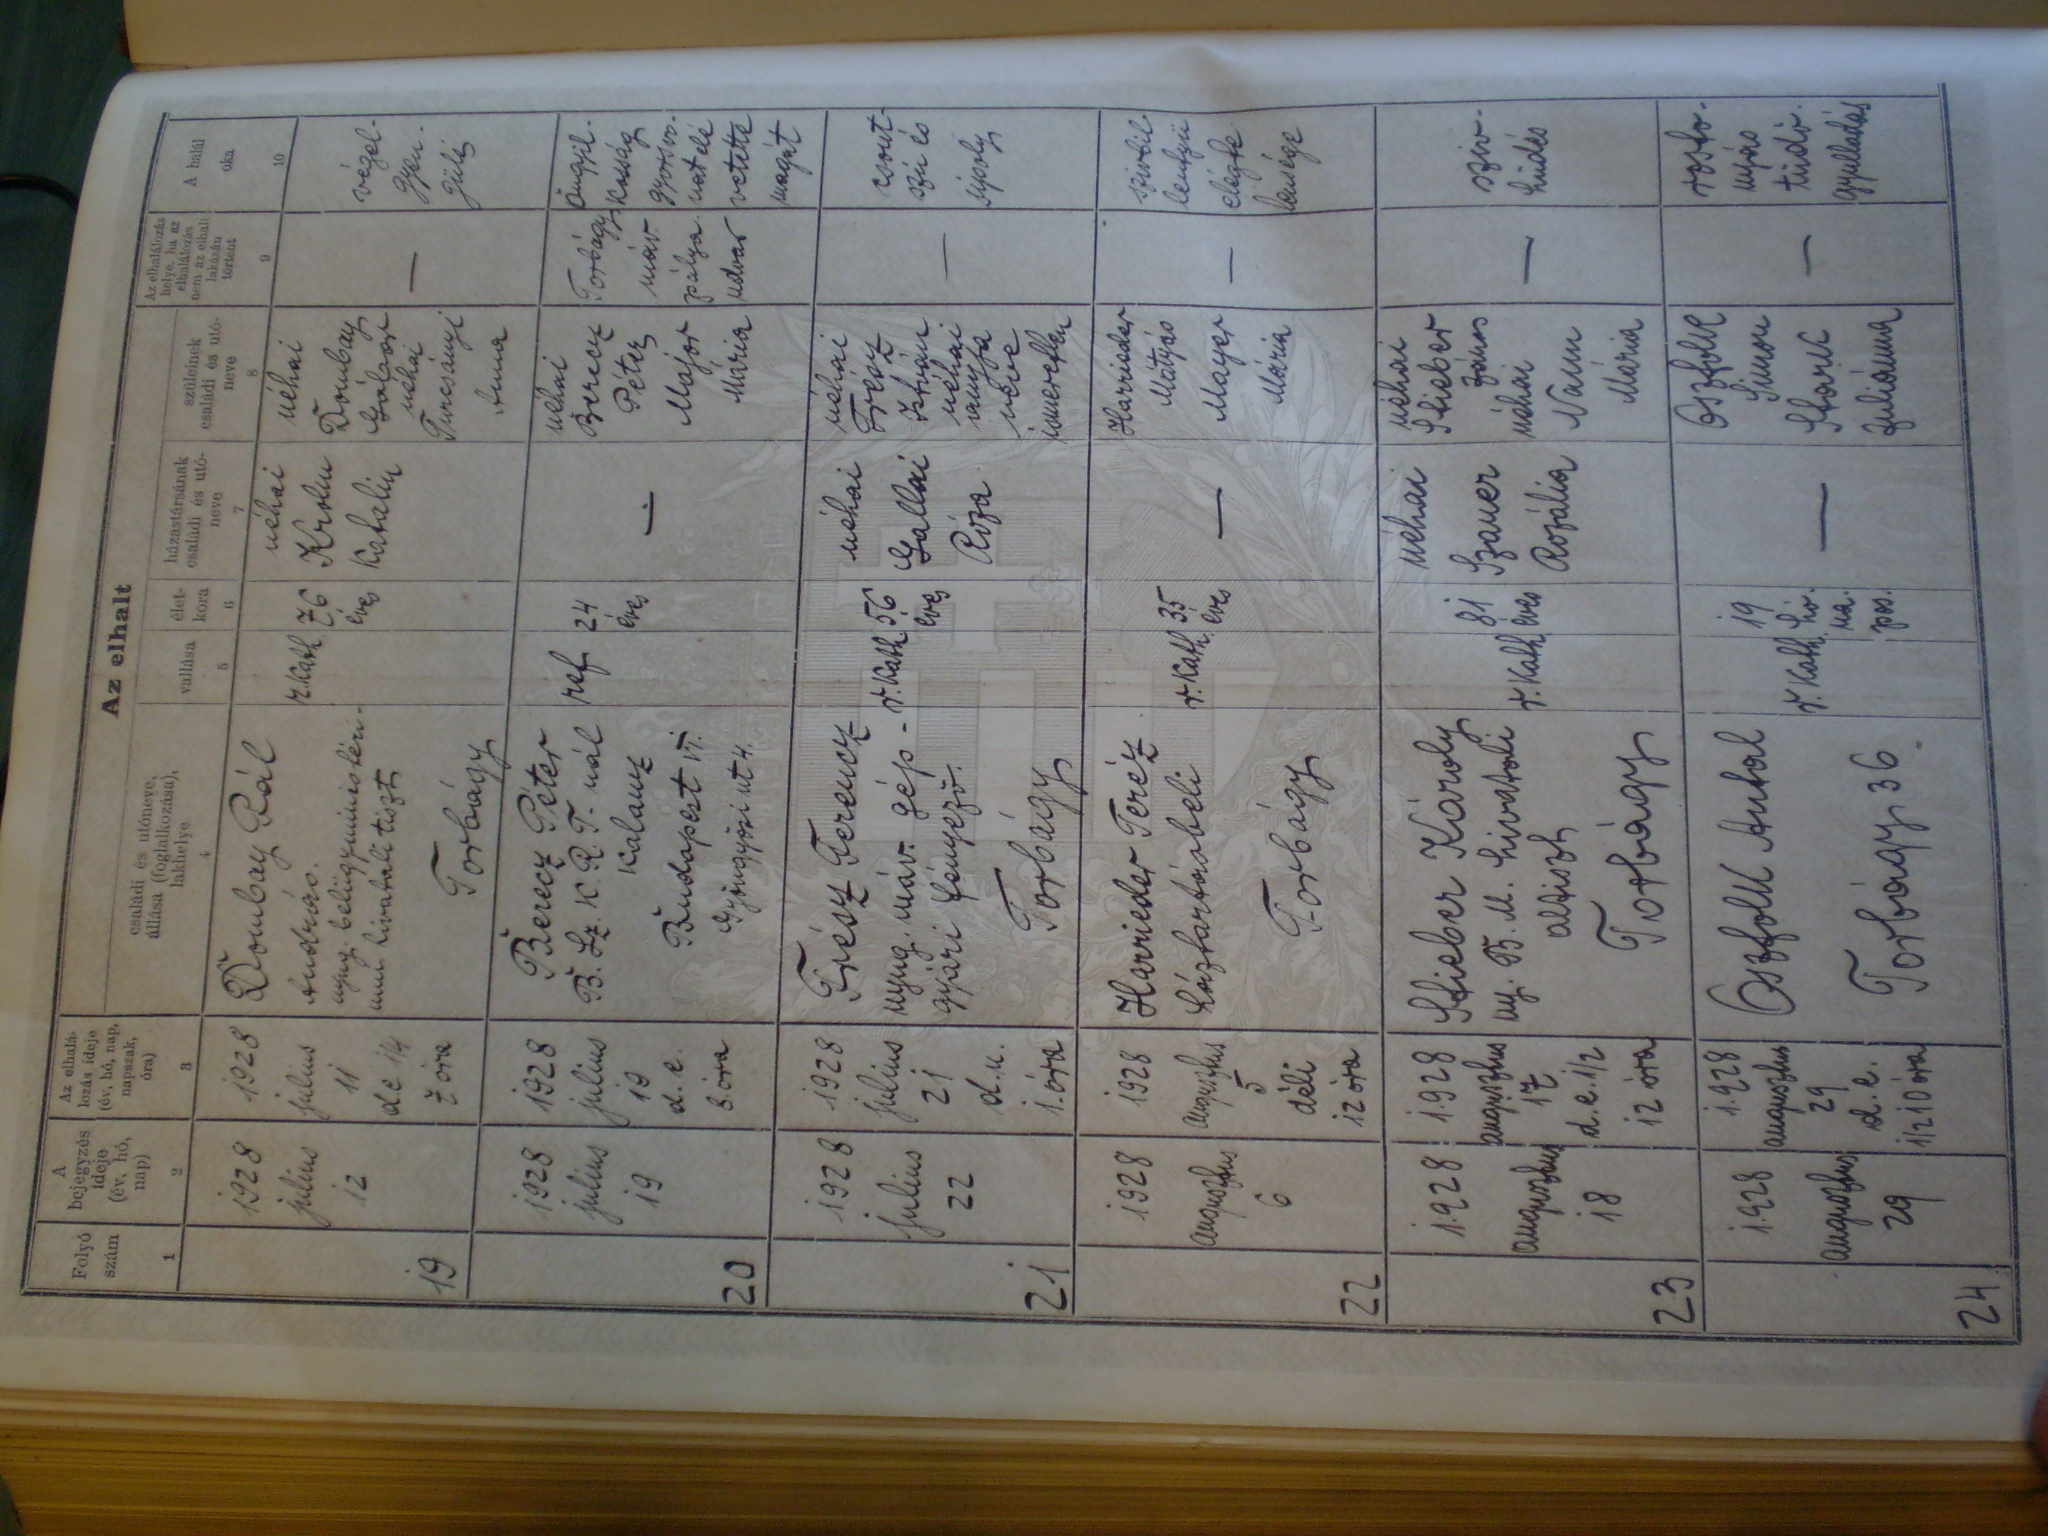 Az elhalt
Folyó
szám
A
bejegyzés
ideje
(év, hó,
nap)
Az elhalá-
lozás ideje
(év, hó, nap,
napszak,
óra)
családi és utóneve,
állása (foglalkozása),
lakhelye
vallása
élet-
kora
házastársának
családi és utó-
neve
szüleinek
családi és utó-
neve
Az elhalálozás
helye, ha az
elhalálozás
nem az elhalt
lakásán
történt
A halál
oka
1
2
3
4
5
6
7
8
9
10
19
1928
július
12
1928
július
11
d.e. 1/4
7 óra
Dombay Pál
András.
nyug. belügyminiszteri-
umi hivatali tiszt
Torbágy
r. kath
76
éves
néhai
Krohn
Katalin
néhai
Dombay
Gábor
néhai
Turcsányi
Anna
—
végel-
gyen-
gülés
20
1928
július
19
1928
július
19
d. e.
8. óra
Berecz Péter
B. Sz. K. R. T. nál
kalauz
Budapest VI.
Gyöngyösi út 4.
ref
24
éves
—
néhai
Berecz
Péter
Major
Mária
Torbágy
máv.
pálya
udvar
Öngyil-
kosság
gyorsvo-
nat elé
vetette
magát
21
1928
július
22
1928
július
21
d. u.
1. óra
Friész Ferencz
nyug. máv. gép-
gyári fényező.
Torbágy
r. kath
56
éves
néhai
Gallai
Róza
néhai
Friész
István
néhai
anyja
neve
ismeretlen
—
csont-
szú és
sipoly
22
1928
augusztus
6
1928
augusztus
5
déli
12 óra
Harrieder Teréz
háztartásbeli
Torbágy
r. kath.
35
éves
—
Harrieder
Mátyás
Mayer
Mária
—
szivbil-
lentyü
elégte-
lensége
23
1928
augusztus
18
1928
augusztus
17
d. e. 1/2
12 óra
Stieber Károly
ny. B. M. hivatali
altiszt
Torbágy
r. kath
81
éves
néhai
Szauer
Rozália
néhai
Stieber
János
néhai
Namm
Mária
—
sziv-
hüdés
24
1928
augusztus
29
1928
augusztus
29
d. e.
1/2 10 óra
Oszfolk Antal
Torbágy 36.
r. kath.
19
hó-
na-
pos.
—
Oszfolk
Simon
Juliánna
—
tüdő-
gyulladás